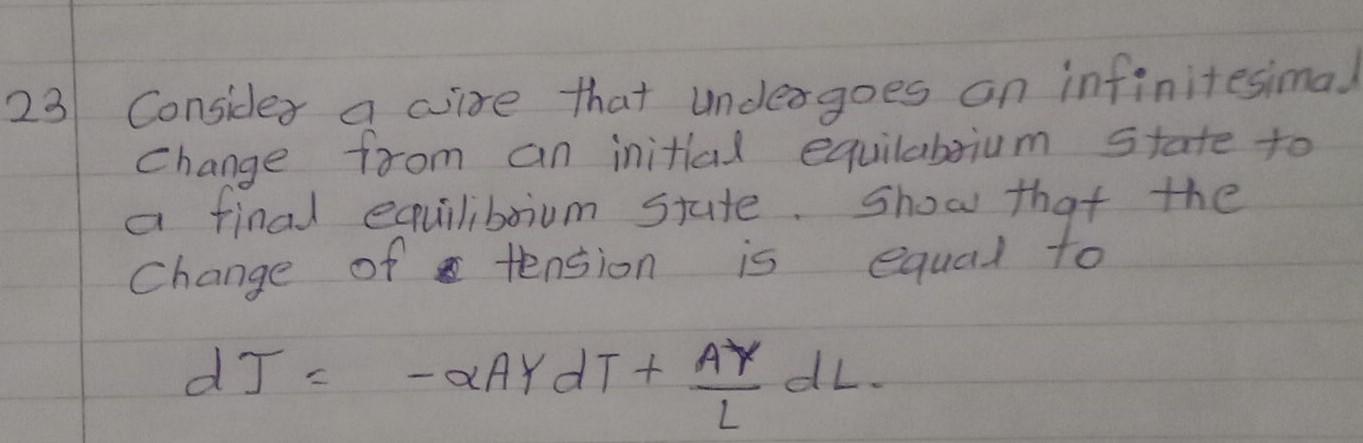 23 Consider a wire that undergoes an infinitesimal
change from an initial equilabrium state to
a final equilibrium state. Show that the
change of tension is equal to
dJ = -αAYdT + AY/L dL.